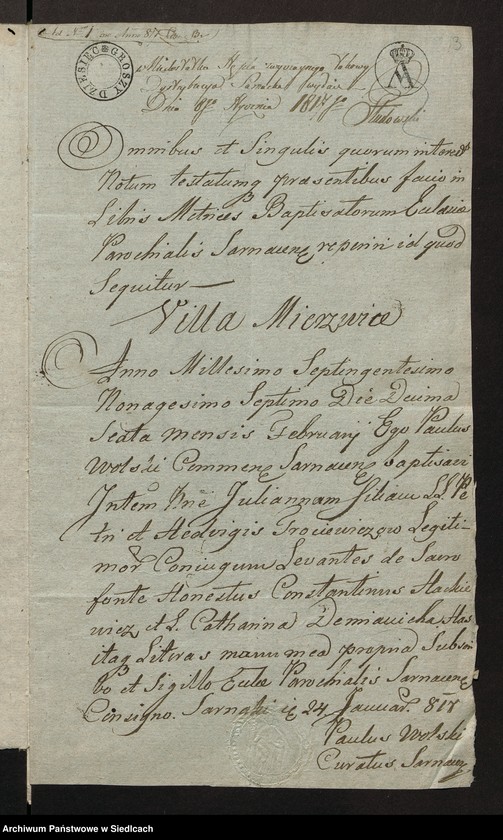 DZIESIĘĆ GROSZY
3
Dnia 1817
Omnibus et Singulis quorum interest
Notum testatumq praesentibus facio in
Libris Metrices Baptisatorum Eclesiæ
Parochialis Sarnacen reperiri id quod
Sequitur —
Villa Mierzwice
Anno Millesimo Septingentesimo
Nonagesimo Septimo Die Decima
Sexta mensis Februarij Ego Paulus
Wolski Commen Sarnacen baptisavi
Intem Nne Juliannam filiam LL. Pe-
tri et Hedvigis Trociewiczow Legiti-
mor Coniugum Levantes de Sacro
fonte Honestus Constantinus Hackie
wicz et L. Catharina Demianicha Has
itaq Literas manu mea propria Subscri
bo et Sigillo Eclæ Parochialis Sarnacen
Consigno. Sarnaki 24 Januar. 817
Paulus Wolski
Curatus Sarnacen
Archiwum Państwowe w Siedlcach